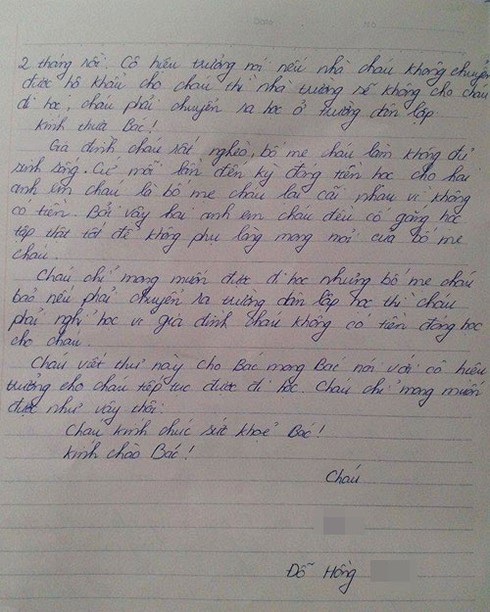 2 tháng rồi. Cô hiệu trưởng nói nếu nhà cháu không chuyển
được hộ khẩu cho cháu thì nhà trường sẽ không cho cháu
đi học, cháu phải chuyển ra học ở trường dân lập.
Kính thưa Bác!
Gia đình cháu rất nghèo, bố mẹ cháu làm không đủ
sinh sống. Cứ mỗi lần đến kỳ đóng tiền học cho hai
anh em cháu là bố mẹ cháu lại cãi nhau vì không
có tiền. Bởi vậy hai anh em cháu đều cố gắng học
tập thật tốt để không phụ lòng mong mỏi của bố mẹ
cháu.
Cháu chỉ mong muốn được đi học nhưng bố mẹ cháu
bảo nếu phải chuyển ra trường dân lập học thì cháu
phải nghỉ học vì gia đình cháu không có tiền đóng học
cho cháu.
Cháu viết thư này cho Bác mong Bác nói với cô hiệu
trưởng cho cháu tiếp tục được đi học. Cháu chỉ mong muốn
được như vậy thôi.
Cháu kính chúc sức khoẻ Bác!
Kính chào Bác!
Cháu
Đỗ Hồng